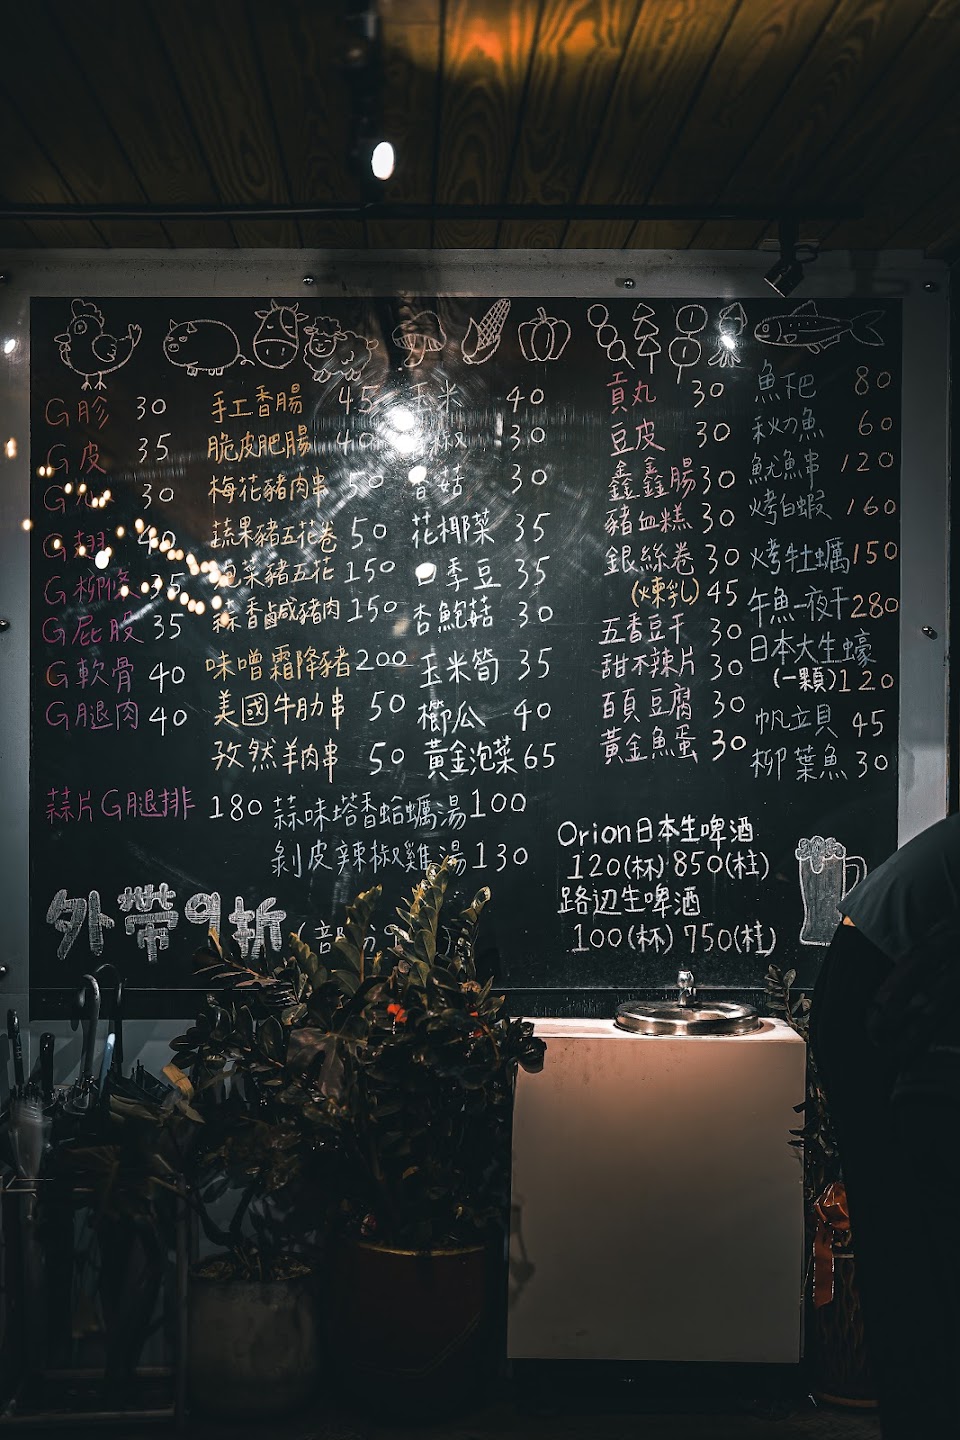 G胗 30
G皮 35
30
G翅 40
G柳條 35
G屁股 35
G軟骨 40
G腿肉 40
手工香腸 45
脆皮肥腸 40
梅花豬肉串 50
蔬果豬五花卷 50
泡菜豬五花 150
蒜香鹹豬肉 150
味噌霜降豬 200
美國牛肋串 50
孜然羊肉串 50
玉米 40
椒 30
香菇 30
花椰菜 35
四季豆 35
杏鮑菇 30
玉米筍 35
櫛瓜 40
黃金泡菜 65
貢丸 30
豆皮 30
鑫鑫腸 30
豬血糕 30
銀絲卷 30
(煉乳) 45
五香豆干 30
甜不辣片 30
百頁豆腐 30
黃金魚蛋 30
魚粑 80
秋刀魚 60
魷魚串 120
烤白蝦 160
烤牡蠣 150
午魚一夜干 280
日本大生蠔
(一顆) 120
帆立貝 45
柳葉魚 30
蒜片G腿排 180
蒜味塔香蛤蠣湯 100
剝皮辣椒雞湯 130
外帶9折 (部分
Orion日本生啤酒
120(杯) 850(柱)
路辺生啤酒
100(杯) 750(柱)